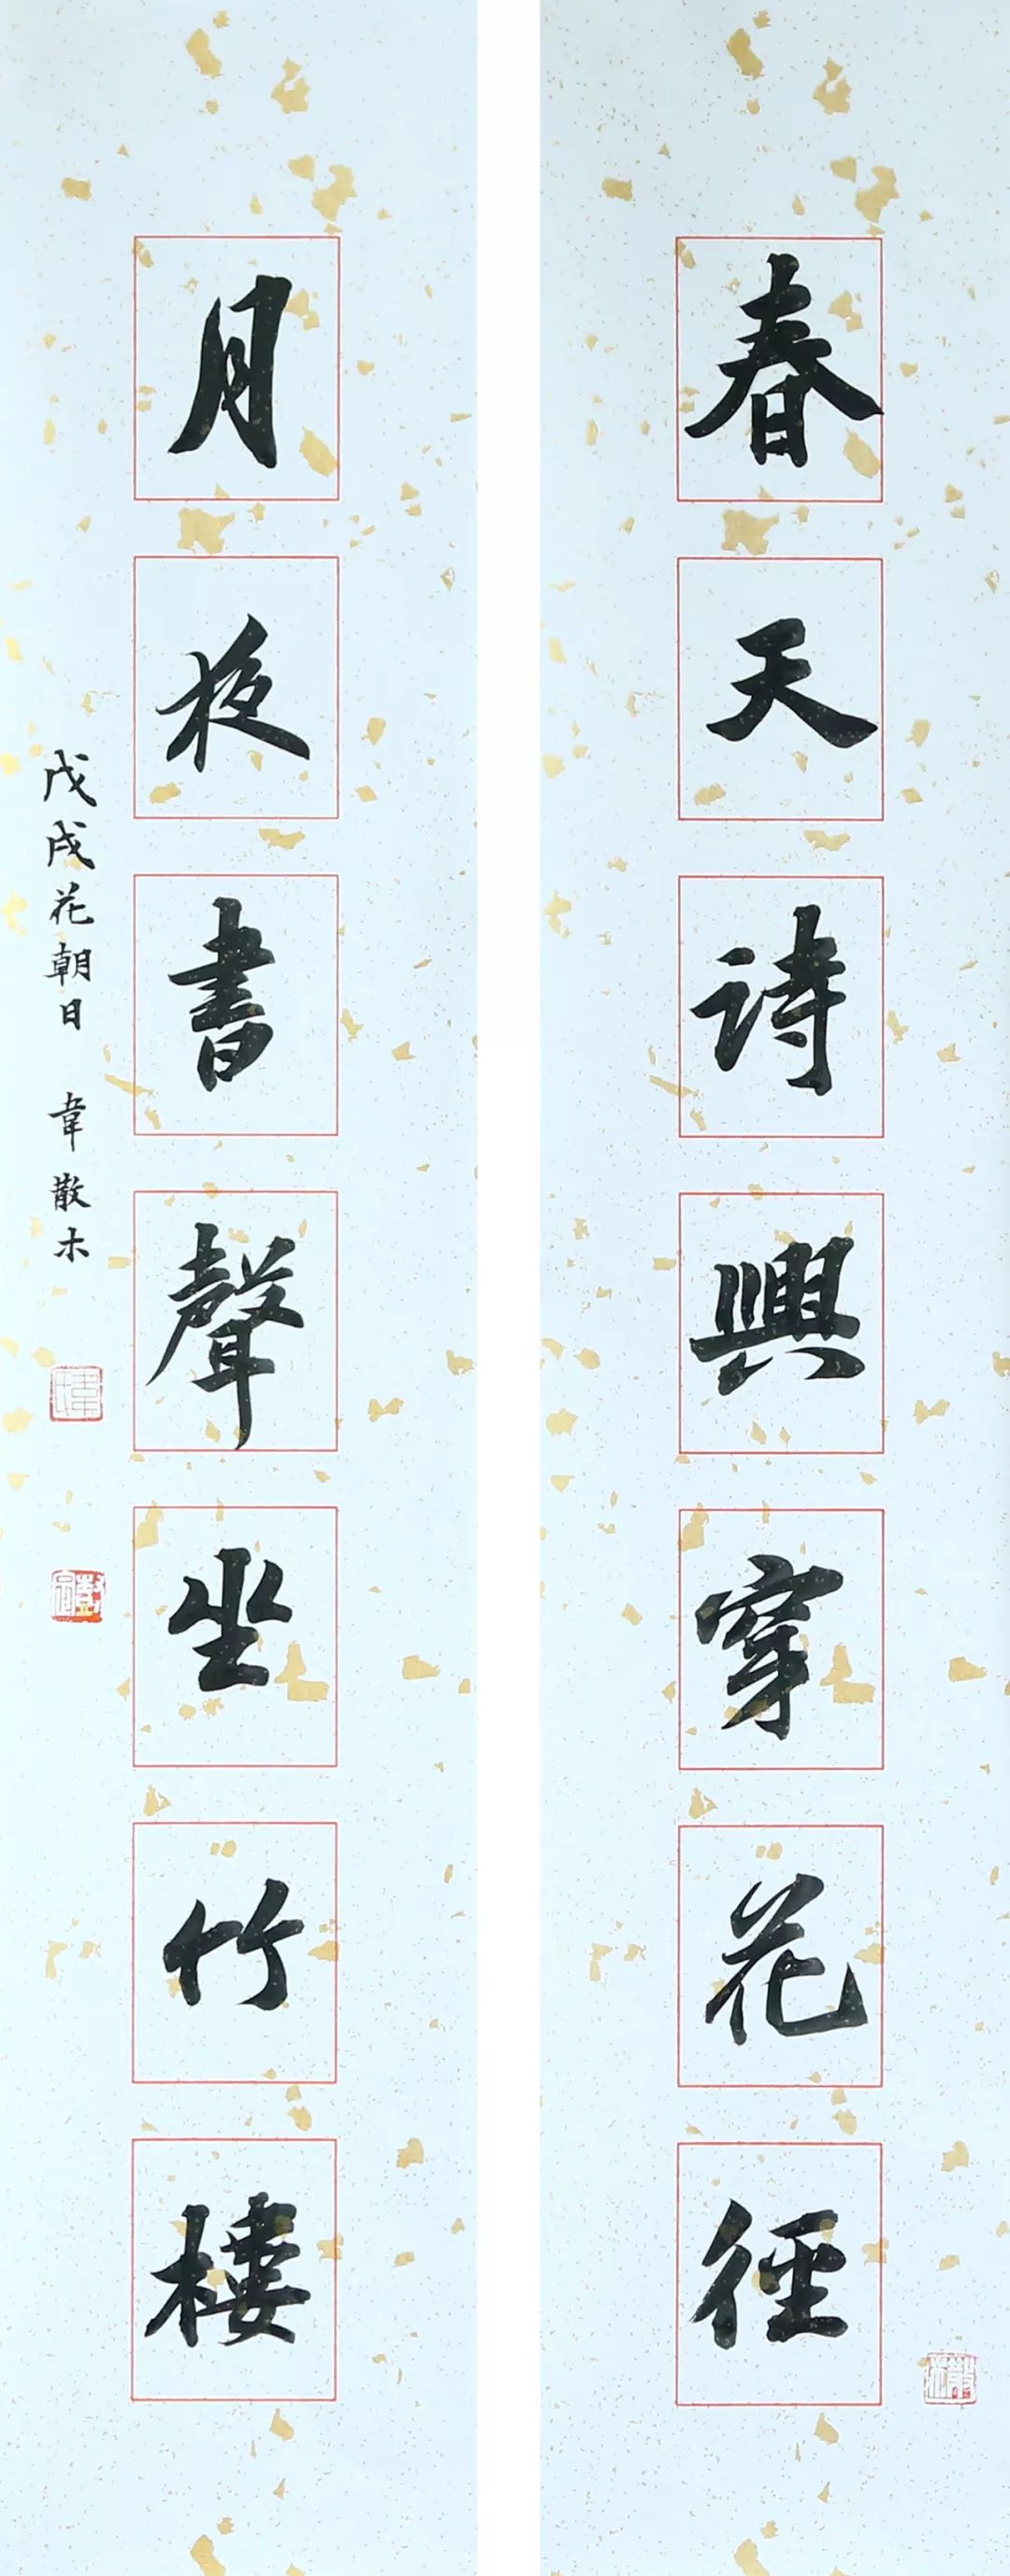 春天诗興穿花徑
月夜書聲坐竹樓
戊戌花朝日 韋散木